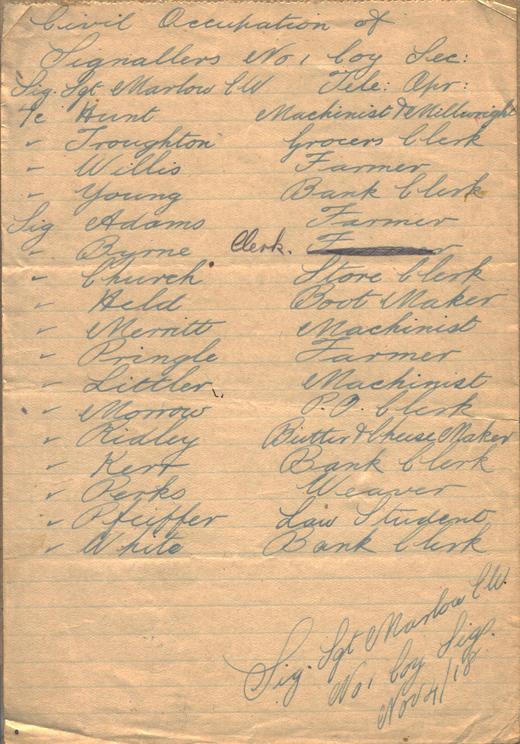 Civil Occupation of
Signallers No 1 Coy Sec:
Sig. Sgt Marlow C W Tele: Opr:
Hunt Machinist & Millwright
" Troughton Grocers Clerk
" Willis Farmer
" Young Bank Clerk
Sig Adams Farmer
" Byrne Clerk.
" Church Store Clerk
" Held Boot Maker
" Merritt Machinist
" Pringle Farmer
" Littler Machinist
" Morrow P.O. Clerk
" Ridley Butter & Cheese Maker
" Kerr Bank Clerk
" Perks Weaver
" Pfeiffer Law Student
" White Bank Clerk
Sig. Sgt Marlow C W.
No 1 Coy Sigs.
Nov 4/18